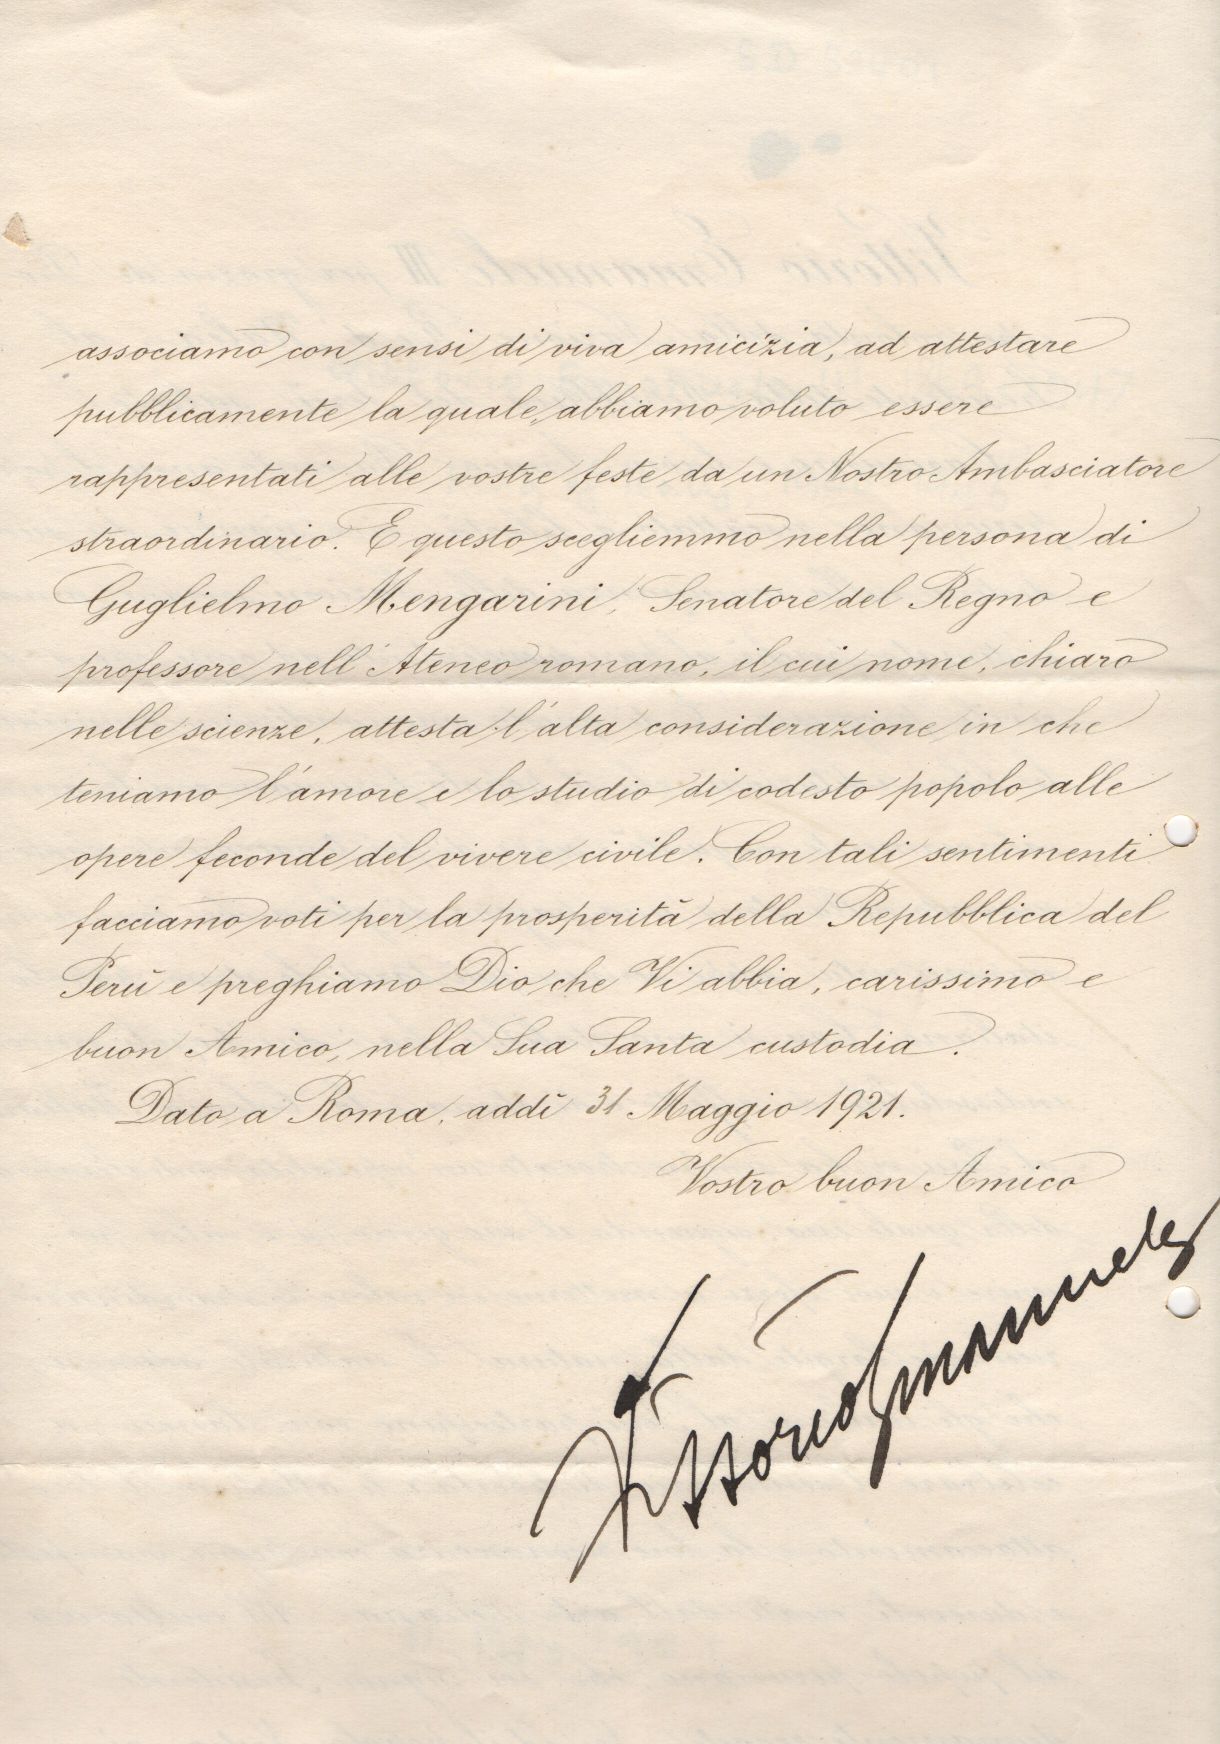 associamo con sensi di viva amicizia, ad attestare
pubblicamente la quale, abbiamo voluto essere
rappresentati alle vostre feste da un Nostro Ambasciatore
straordinario. E questo scegliemmo nella persona di
Guglielmo Mengarini, Senatore del Regno e
professore nell'Ateneo romano, il cui nome, chiaro
nelle scienze, attesta l'alta considerazione in che
teniamo l'amore e lo studio di codesto popolo alle
opere feconde del vivere civile. Con tali sentimenti
facciamo voti per la prosperità della Repubblica del
Perù e preghiamo Dio che Vi abbia, carissimo e
buon Amico, nella Sua Santa custodia.
Dato a Roma, addì 31 Maggio 1921.
Vostro buon Amico
Vittorio Emanuele
Vittorio Emanuele III per grazia di Dio